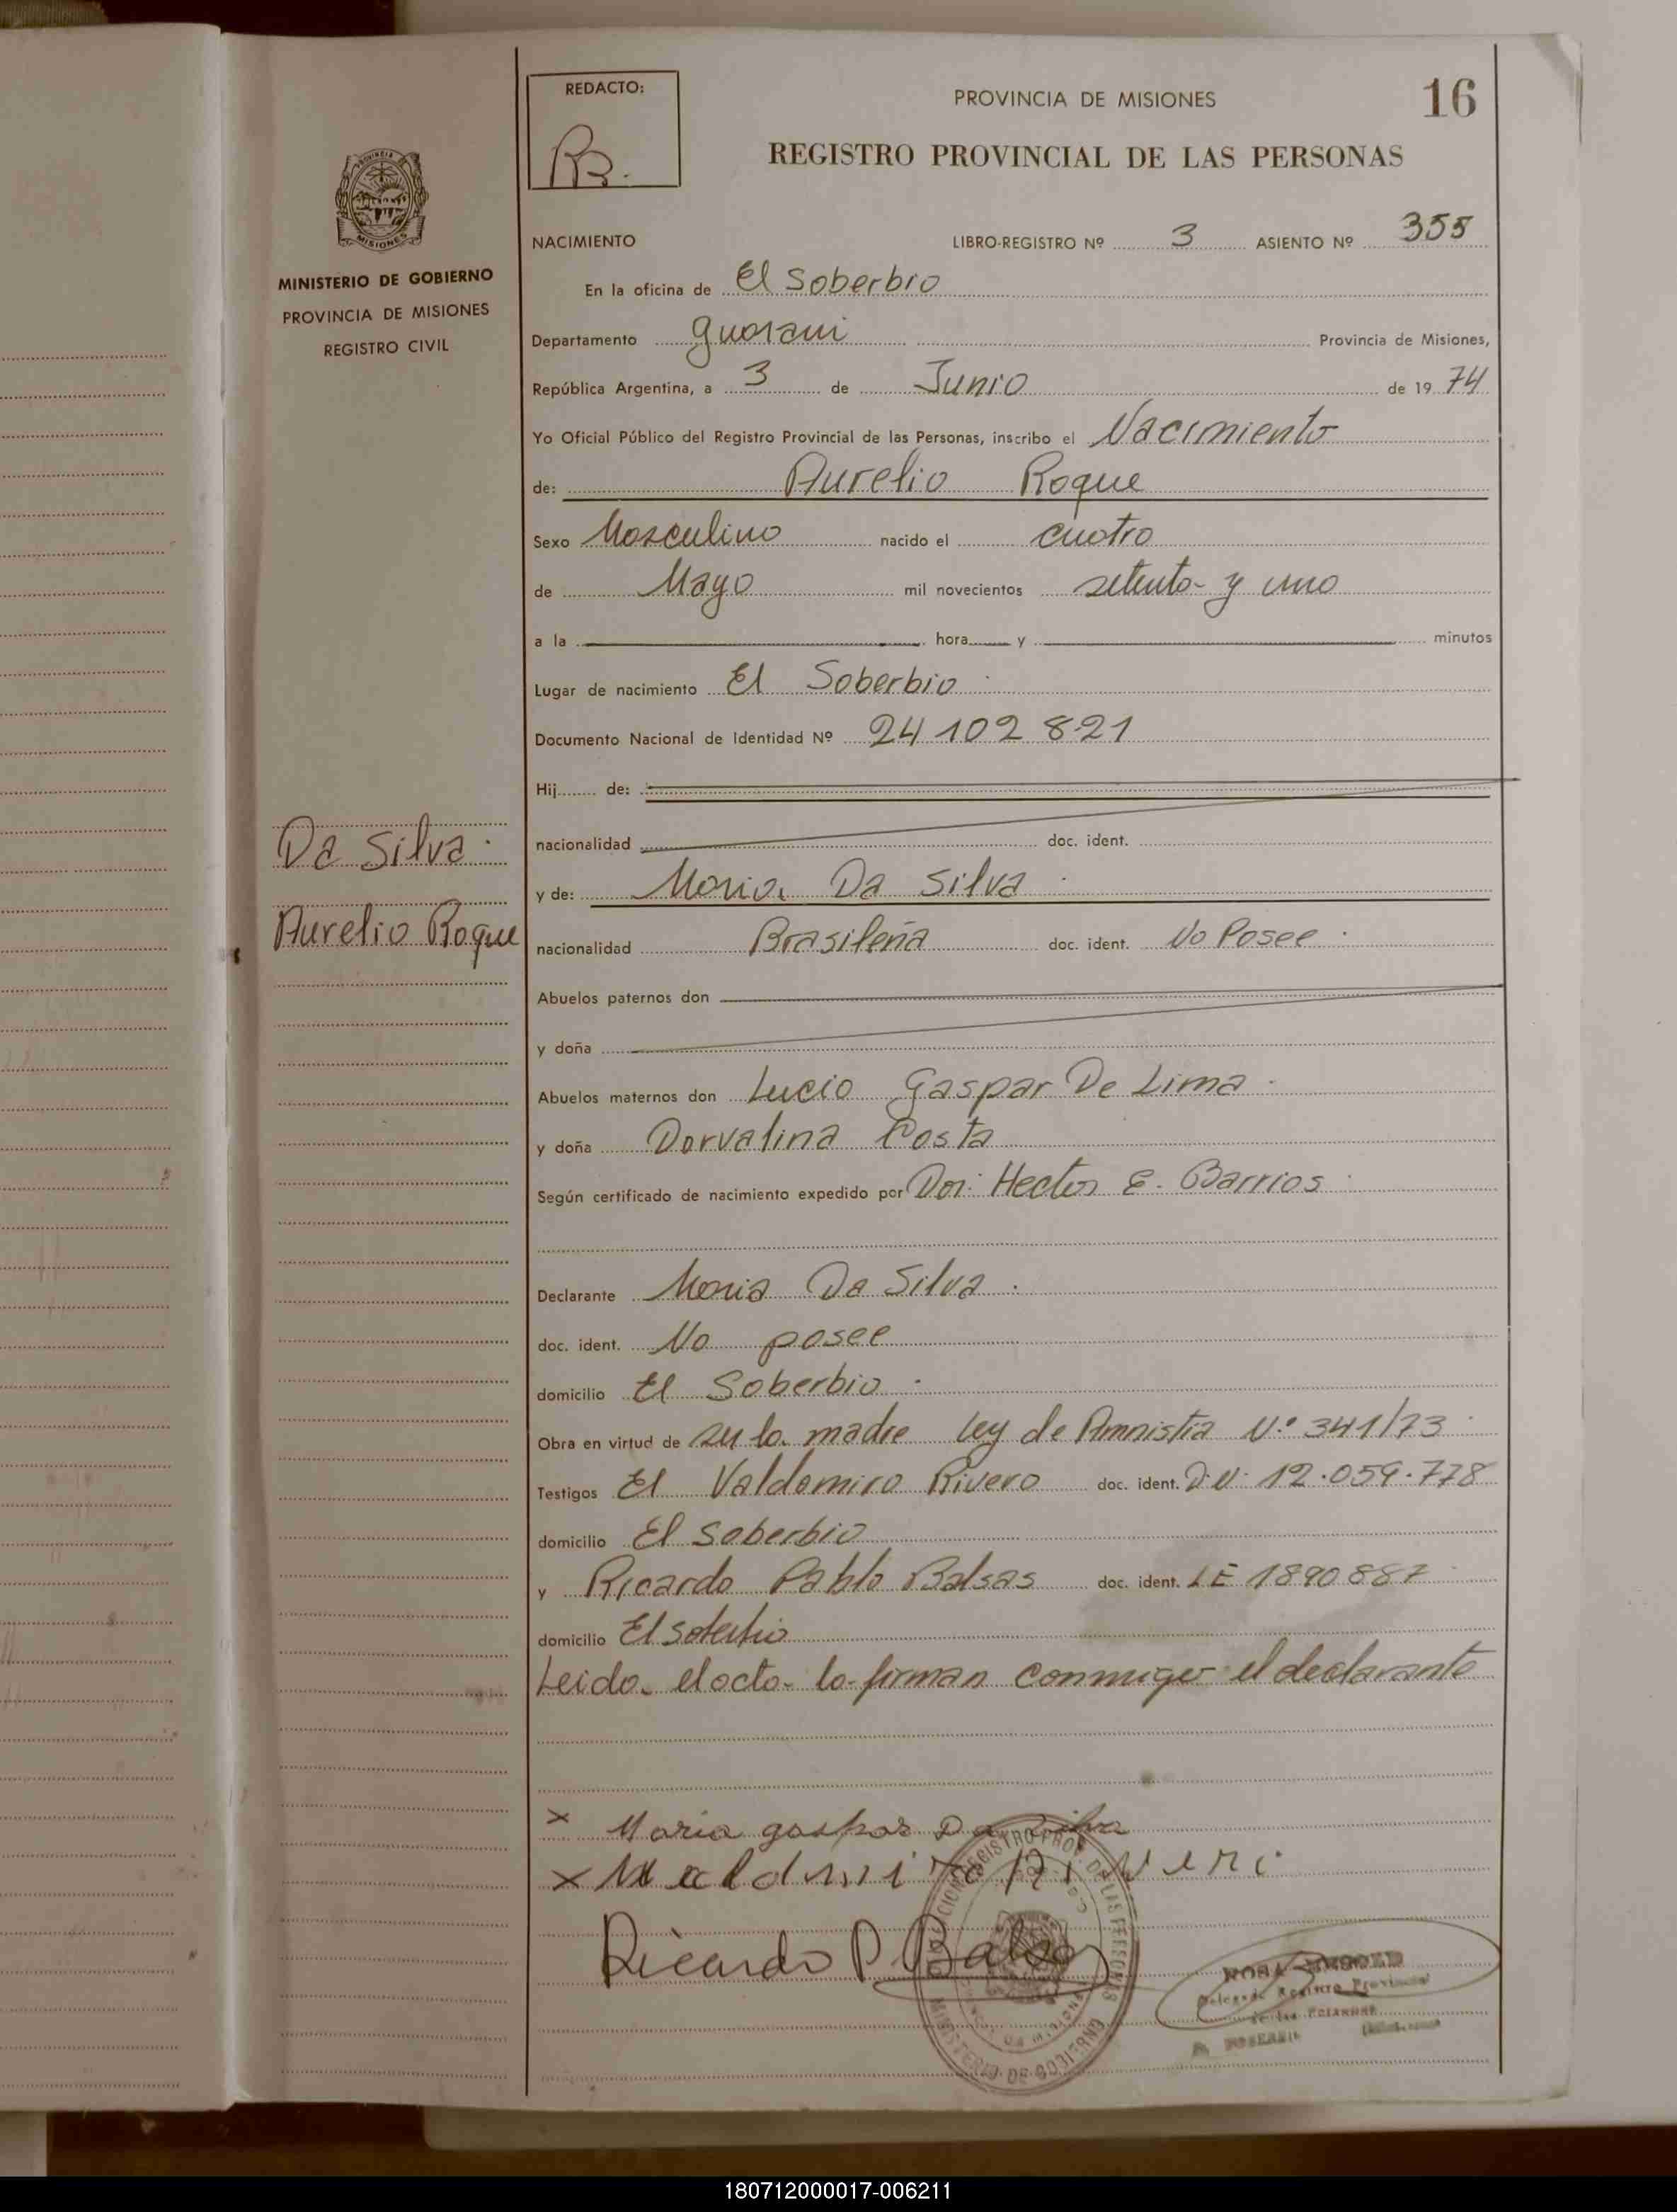 REDACTO:
RB.
PROVINCIA DE MISIONES
16
REGISTRO PROVINCIAL DE LAS PERSONAS
PROVINCIA DE
MISIONES
MINISTERIO DE GOBIERNO
PROVINCIA DE MISIONES
REGISTRO CIVIL
NACIMIENTO LIBRO-REGISTRO Nº 3 ASIENTO Nº 355
En la oficina de El Soberbio
Departamento Guarani Provincia de Misiones,
República Argentina, a 3 de Junio de 19 74
Yo Oficial Público del Registro Provincial de las Personas, inscribo el Nacimiento
de: Aurelio Roque
Sexo Masculino nacido el cuatro
de Mayo mil novecientos setenta y uno
a la hora y minutos
Lugar de nacimiento El Soberbio
Documento Nacional de Identidad Nº 24 102 821
Hij de:
nacionalidad doc. ident.
Da Silva
y de: Maria Da Silva
Aurelio Roque
nacionalidad Brasileña doc. ident. No Posee
Abuelos paternos don
y doña
Abuelos maternos don Lucio Gaspar De Lima
y doña Dorvalina Costa
Según certificado de nacimiento expedido por Dor. Hector E. Barrios
Declarante Maria Da Silva
doc. ident. No posee
domicilio El Soberbio
Obra en virtud de ser la madre Ley de Amnistia N.º 341/73
Testigos El Valdomiro Rivero doc. ident. D.N. 12.059.778
domicilio El Soberbio
y Ricardo Pablo Balsas doc. ident. LE 1890887
domicilio El Soberbio
Leida el acta la firman conmigo el declarante
x Maria gaspar Da Silva
x Valdmiro Riveri
Ricardo P. Balsas
MINISTERIO DE GOBIERNO
180712000017-006211